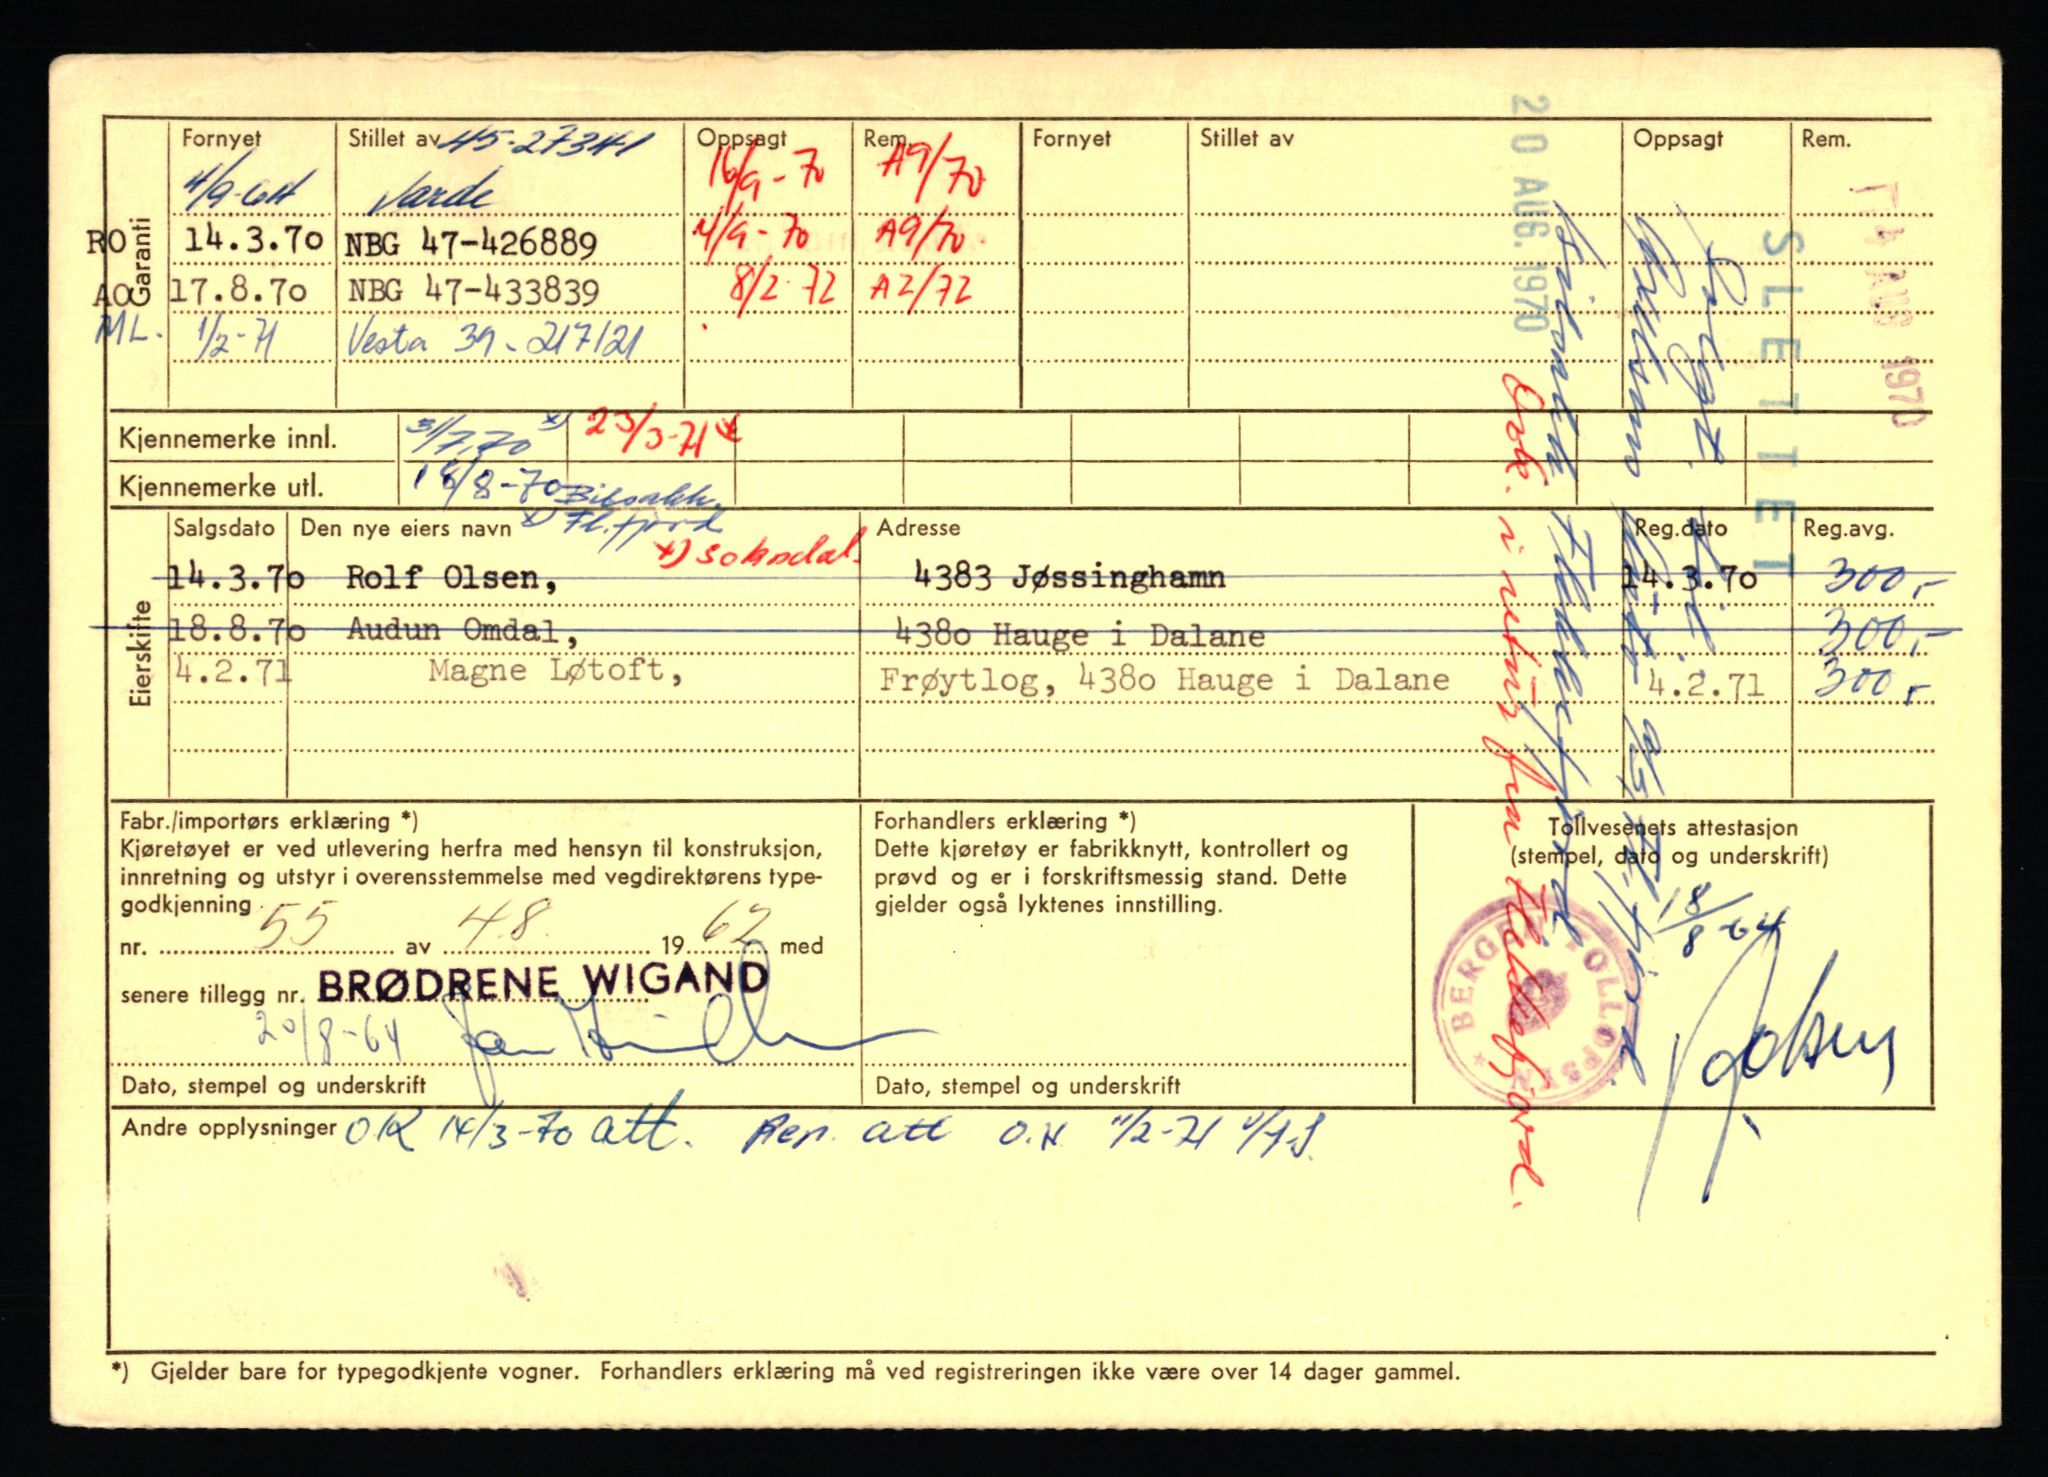 Fornyet Stillet av 45-27341 Oppsagt Rem. Fornyet Stillet av Oppsagt Rem.
4/9-64 Varde 16/9-70 A9/70
RO 14.3.70 NBG 47-426889 4/9-70 A9/70
AO 17.8.70 NBG 47-433839 8/2-72 A2/72
ML. 1/2-71 Vesta 39-217121
Garanti
20 AUG. 1970
SLETTET
AUG 1970
Kjennemerke innl. 31/7.70 x) 23/3-71 x
Kjennemerke utl. 18/8-70 Bilsakk.
x) Fl.fjord
x) Sokndal
Salgsdato Den nye eiers navn Adresse Reg.dato Reg.avg.
14.3.70 Rolf Olsen, 4383 Jøssinghamn 14.3.70 300,-
18.8.70 Audun Omdal, 4380 Hauge i Dalane 300,-
4.2.71 Magne Løtoft, Frøytlog, 4380 Hauge i Dalane 4.2.71 300,-
Eierskifte
i retur fra Flekkefjord.
Flekkefjord
Fabr./importørs erklæring *)
Kjøretøyet er ved utlevering herfra med hensyn til konstruksjon,
innretning og utstyr i overensstemmelse med vegdirektørens type-
godkjenning
nr. 55 av 4.8. 1962 med
senere tillegg nr. BRØDRENE WIGAND
20/8-64
Dato, stempel og underskrift
Forhandlers erklæring *)
Dette kjøretøy er fabrikknytt, kontrollert og
prøvd og er i forskriftsmessig stand. Dette
gjelder også lyktenes innstilling.
Dato, stempel og underskrift
Tollvesenets attestasjon
(stempel, dato og underskrift)
18/8-64
BERGEN TOLLOPSYN
Andre opplysninger O.K 14/3-70 att. Rep. att O.H. 11/2-71
*) Gjelder bare for typegodkjente vogner. Forhandlers erklæring må ved registreringen ikke være over 14 dager gammel.